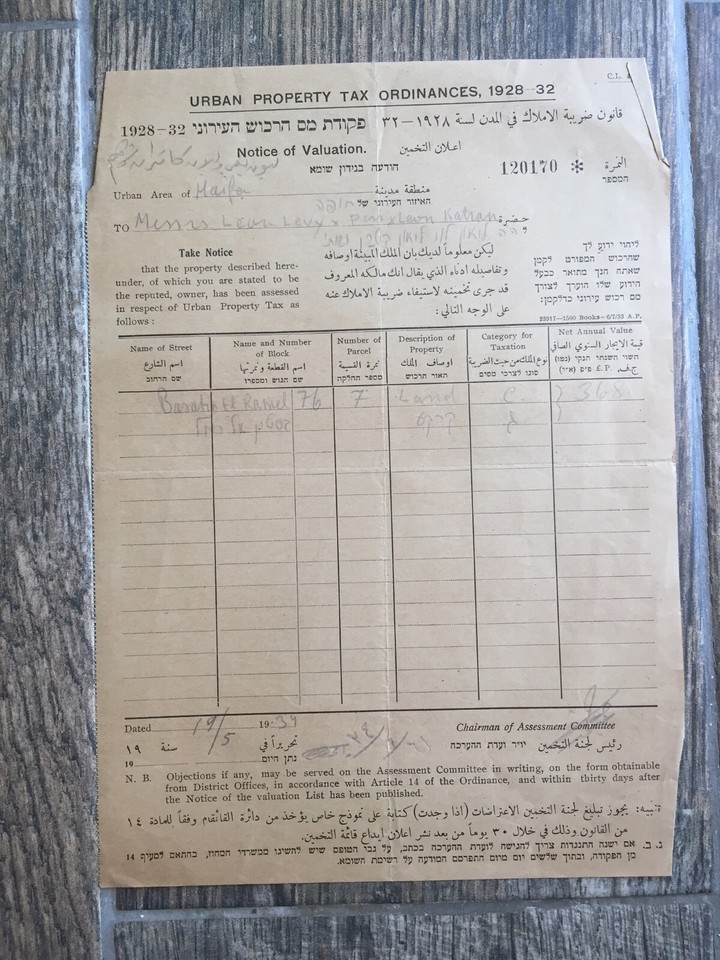 C.L.
URBAN PROPERTY TAX ORDINANCES, 1928-32
قانون ضريبة الاملاك في المدن لسنة ١٩٢٨—٣٢
פקודת מס הרכוש העירוני 1928-32
Notice of Valuation.
اعلان التخمين
הודעה בנידון שומא
120170 *
النمرة
המספר
Urban Area of Haifa
منطقة مدينة
האיזור העירוני של חיפה
TO Messrs Leon Levy & Leon Kattan
حضرة
ל
Take Notice
that the property described here-
under, of which you are stated to
be the reputed, owner, has been assessed
in respect of Urban Property Tax as
follows :
ليكن معلوماً لديك بان الملك المبينة اوصافه
وتفاصيله ادناه الذي يقال انك مالكه المعروف
قد جرى تخميته لاستيفاء ضريبة الاملاك عنه
على الوجه التالي:
ליהוי ידוע לך
שהרכוש המפורט לקמן
שאתה הנך מתואר כבעל
הידוע שלו הוערך לצורך
מס רכוש עירוני כדלקמן:
23317—1500 Books—6/7/33 A.P.
Name of Street
اسم الشارع
שם הרחוב
Name and Number of Block
اسم القطعة ونمرتها
שם הגוש ומספרו
Number of Parcel
نمرة القسيمة
מספר החלקה
Description of Property
اوصاف الملك
תאור הרכוש
Category for Taxation
نوع الملك من حيث الضريبة
סוגו לצרכי מסים
Net Annual Value
قيمة الايجار السنوي الصافي
השווי השנתי הנקי (נטו)
ج.ف. £.P. פ״פ (א״י)
Basatin El Ramel 76 7 Land 368
קרקע ג
Dated 19/5 1934
Chairman of Assessment Committee
تحريراً في سنة ١٩
رئيس لجنة التخمين
יו״ר ועדת ההערכה
נתן היום 19
N. B. Objections if any, may be served on the Assessment Committee in writing, on the form obtainable
from District Offices, in accordance with Article 14 of the Ordinance, and within thirty days after
the Notice of the valuation List has been published.
تنبيه: يجوز تبليغ لجنة التخمين الاعتراضات (اذا وجدت) كتابة على نموذج خاص يؤخذ من دائرة القائمقام وفقاً للمادة ١٤
من القانون وذلك في خلال ٣٠ يوماً من بعد نشر اعلان ايداع قائمة التخمين.
נ. ב. אם ישנה התנגדות צריך להגישה לועדת ההערכה בכתב, על גבי הטופס שיש להשיגו ממשרדי המחוז, בהתאם לסעיף 14
מן הפקודה, ובתוך שלשים יום מיום התפרסם המודעה על רשימת השומא.